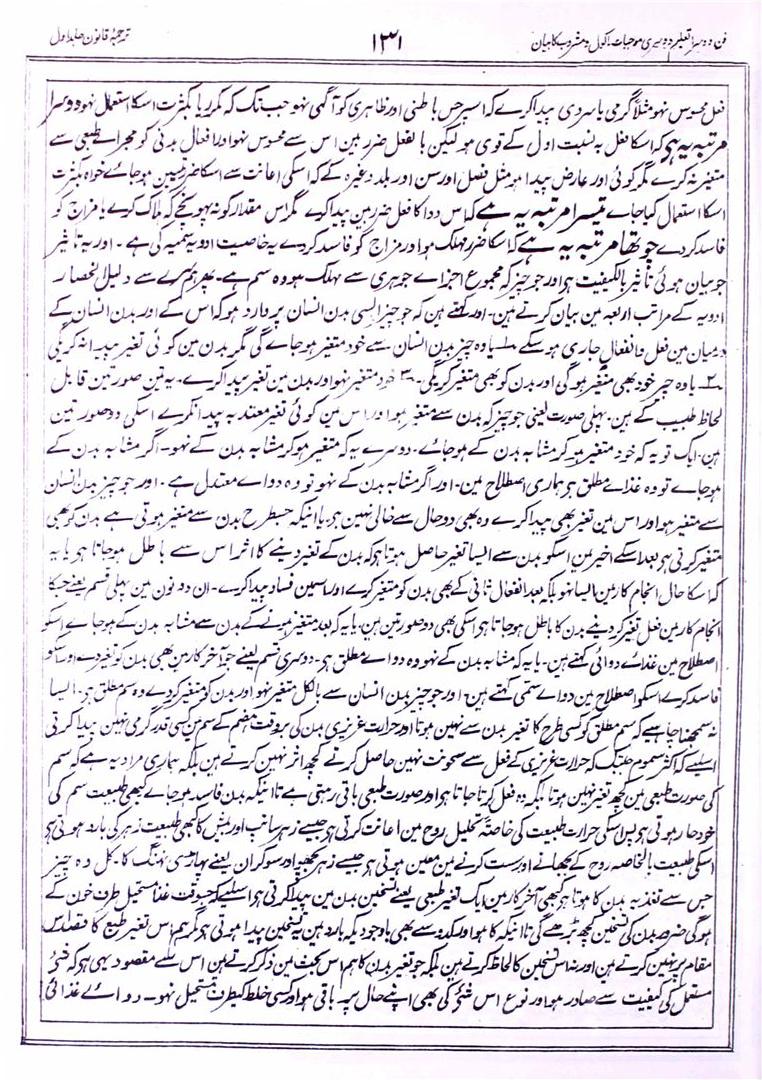 فن دوسرا تعلیم دوسری موجبات ماکول و مشروب کا بیان
۱۳۱
ترجمۂ قانون جلد اول
فعل محسوس نہو مثلاً گرمی یا سردی پیدا کرے کہ اسپر حس باطنی اور ظاہری کو آگہی نہو جب تک کہ مکرر یا بکثرت اسکا استعمال نہو دوسرا
مرتبہ یہ ہی کہ اسکا فعل بہ نسبت اول کے قوی ہو لیکن بالفعل ضرر بین اس سے محسوس نہو اور افعال بدنی کو مجراے طبعی سے
متغیر نہ کرے مگر کوئی اور عارض پیدا ہو مثل فصل اور سن اور بلد وغیرہ کے کہ اسکی اعانت سے اسکا ضرر بین ہو جاے خواہ بکثرت
اسکا استعمال کیا جاے تیسرا مرتبہ یہ ہے کہ اس دوا کا فعل ضرر بین پیدا کرے مگر اس مقدار کو نہ پہونچے کہ ہلاک کرے یا مزاج کو
فاسد کردے چوتھا مرتبہ یہ ہے کہ اسکا ضرر مہلک ہو اور مزاج کو فاسد کردے یہ خاصیت ادویہ سمیہ کی ہے ۔ اور یہ تاثیر
جو بیان ہوئی تاثیر بالکیفیت ہو اور جو چیز کہ مجموع اجزاے جوہری سے مہلک ہو وہ سم ہے ۔ پھر ہم سرے سے دلیل انحصار
ادویہ کے مراتب اربعہ مین بیان کرتے ہین ۔ اور کہتے ہین کہ جو چیز ایسی بدن انسان پر وارد ہو کہ اس کے اور بدن انسان کے
درمیان مین فعل و انفعال جاری ہو سکے ۱ یا وہ چیز بدن انسان سے خود متغیر ہو جاے گی مگر بدن مین کوئی تغیر پیدا نہ کریگی
۲ یا وہ چیز خود بھی متغیر ہوگی اور بدن کو بھی متغیر کریگی ۳ خود متغیر نہو اور بدن مین تغیر پیدا کرے ۔ یہ تین صورتین قابل
لحاظ طبیب کے ہین ۔ پہلی صورت یعنی جو چیز کہ بدن سے متغیر ہو اور اس مین کوئی تغیر معتد بہ پیدا نکرے اسکی دو صورتین
ہین ۔ ایک تو یہ کہ خود متغیر ہو کر مشابہ بدن کے ہو جاے ۔ دوسرے یہ کہ متغیر ہو کر مشابہ بدن کے نہو ۔ اگر مشابہ بدن کے
ہو جاے تو وہ غذاے مطلق ہی ہماری اصطلاح مین ۔ اور اگر مشابہ بدن کے نہو تو وہ دواے معتدل ہے ۔ اور جو چیز بدن انسان
سے متغیر ہو اور اس مین تغیر بھی پیدا کرے وہ بھی دو حال سے خالی نہین ہی یا انیکہ جسطرح بدن سے متغیر ہوتی ہے بدن کو بھی
متغیر کرتی ہی بعد اسکے اخیر مین اسکو بدن سے ایسا تغیر حاصل ہوتا ہی کہ بدن کے تغیر دینے کا اثر اس سے باطل ہو جاتا ہو یا یہ
کہ اسکا حال انجام کار مین ایسا نہو بلکہ بعد انفعال ثانی کے بھی بدن کو متغیر کرے اور اسمین فساد پیدا کرے ۔ ان دونون مین پہلی قسم یعنے جسکا
انجام کار مین فعل تغیر کردینے بدن کا باطل ہو جاتا ہی اسکی بھی دو صورتین ہین ۔ یا یہ کہ بعد متغیر ہونے کے بدن سے مشابہ بدن کے ہو جاے اسکو
اصطلاح مین غذاے دوائی کہتے ہین ۔ یا یہ کہ مشابہ بدن کے نہو وہ دواے مطلق ہی ۔ دوسری قسم یعنے جو آخر کار مین بھی بدن کو تغیر دے اور اسکو
فاسد کرے اسکو اصطلاح مین دواے سمی کہتے ہین ۔ اور جو چیز بدن انسان سے بالکل متغیر نہو اور بدن کو متغیر کردے وہ سم مطلق ہی ۔ ایسا
نہ سمجھنا چاہیے کہ سم مطلق کو کسی طرح کا تغیر بدن سے نہین ہوتا اور حرارت غریزی بدن کی بروقت ہضم کے سم مین کسی قدر گرمی نہین پیدا کرتی
اسلیے کہ اکثر سموم جبتک کہ حرارت غریزی کے فعل سے سخونت نہین حاصل کرتے کچھ اثر نہین کرتے ہین بلکہ ہماری مراد یہ ہے کہ سم
کی صورت طبعی مین کچھ تغیر نہین ہوتا بلکہ وہ فعل کرتا جاتا ہو اور صورت طبعی باقی رہتی ہے تا انیکہ بدن فاسد ہو جاے کبھی طبیعت سم کی
خود حار ہوتی ہو پس اسکی حرارت طبیعت کی خاصۃً تحلیل روح مین اعانت کرتی ہی جیسے زہر سانپ اور بیش کا کبھی طبیعت زہر کی بارد ہوتی ہی
اسکی طبیعت بالخاصہ روح کے بجھانے اور سست کرنے مین معین ہوتی ہی جیسے زہر بچھو اور سوکران یعنے پہاڑی بھنگ کا ۔ کل وہ چیز
جس سے تغذیہ بدن کا ہوتا ہو کبھی آخر کار مین ایک تغیر طبعی یعنے تسخین بدن مین پیدا کرتی ہو اسلیے کہ جسوقت غذا مستحیل طرف خون کے
ہوگی ضرور بدن کی تسخین کچھ بڑھے گی تا انیکہ کاہو اور کدو سے بھی باوجودیکہ بارد ہین یہ تسخین پیدا ہوتی ہو مگر ہم اس تغیر طبع کا قصد اس
مقام پر نہین کرتے ہین اور نہ اس تسخین کا لحاظ کرتے ہین بلکہ جو تغیر بدن کا ہم اس بحث مین ذکر کرتے ہین اس سے مقصود یہی ہو کہ شے
مستعمل کی کیفیت سے صادر ہو اور نوع اس شئ کی بھی اپنے حال پر باقی ہو اور کسی خلط کیطرف مستحیل نہو ۔ دواے غذائی